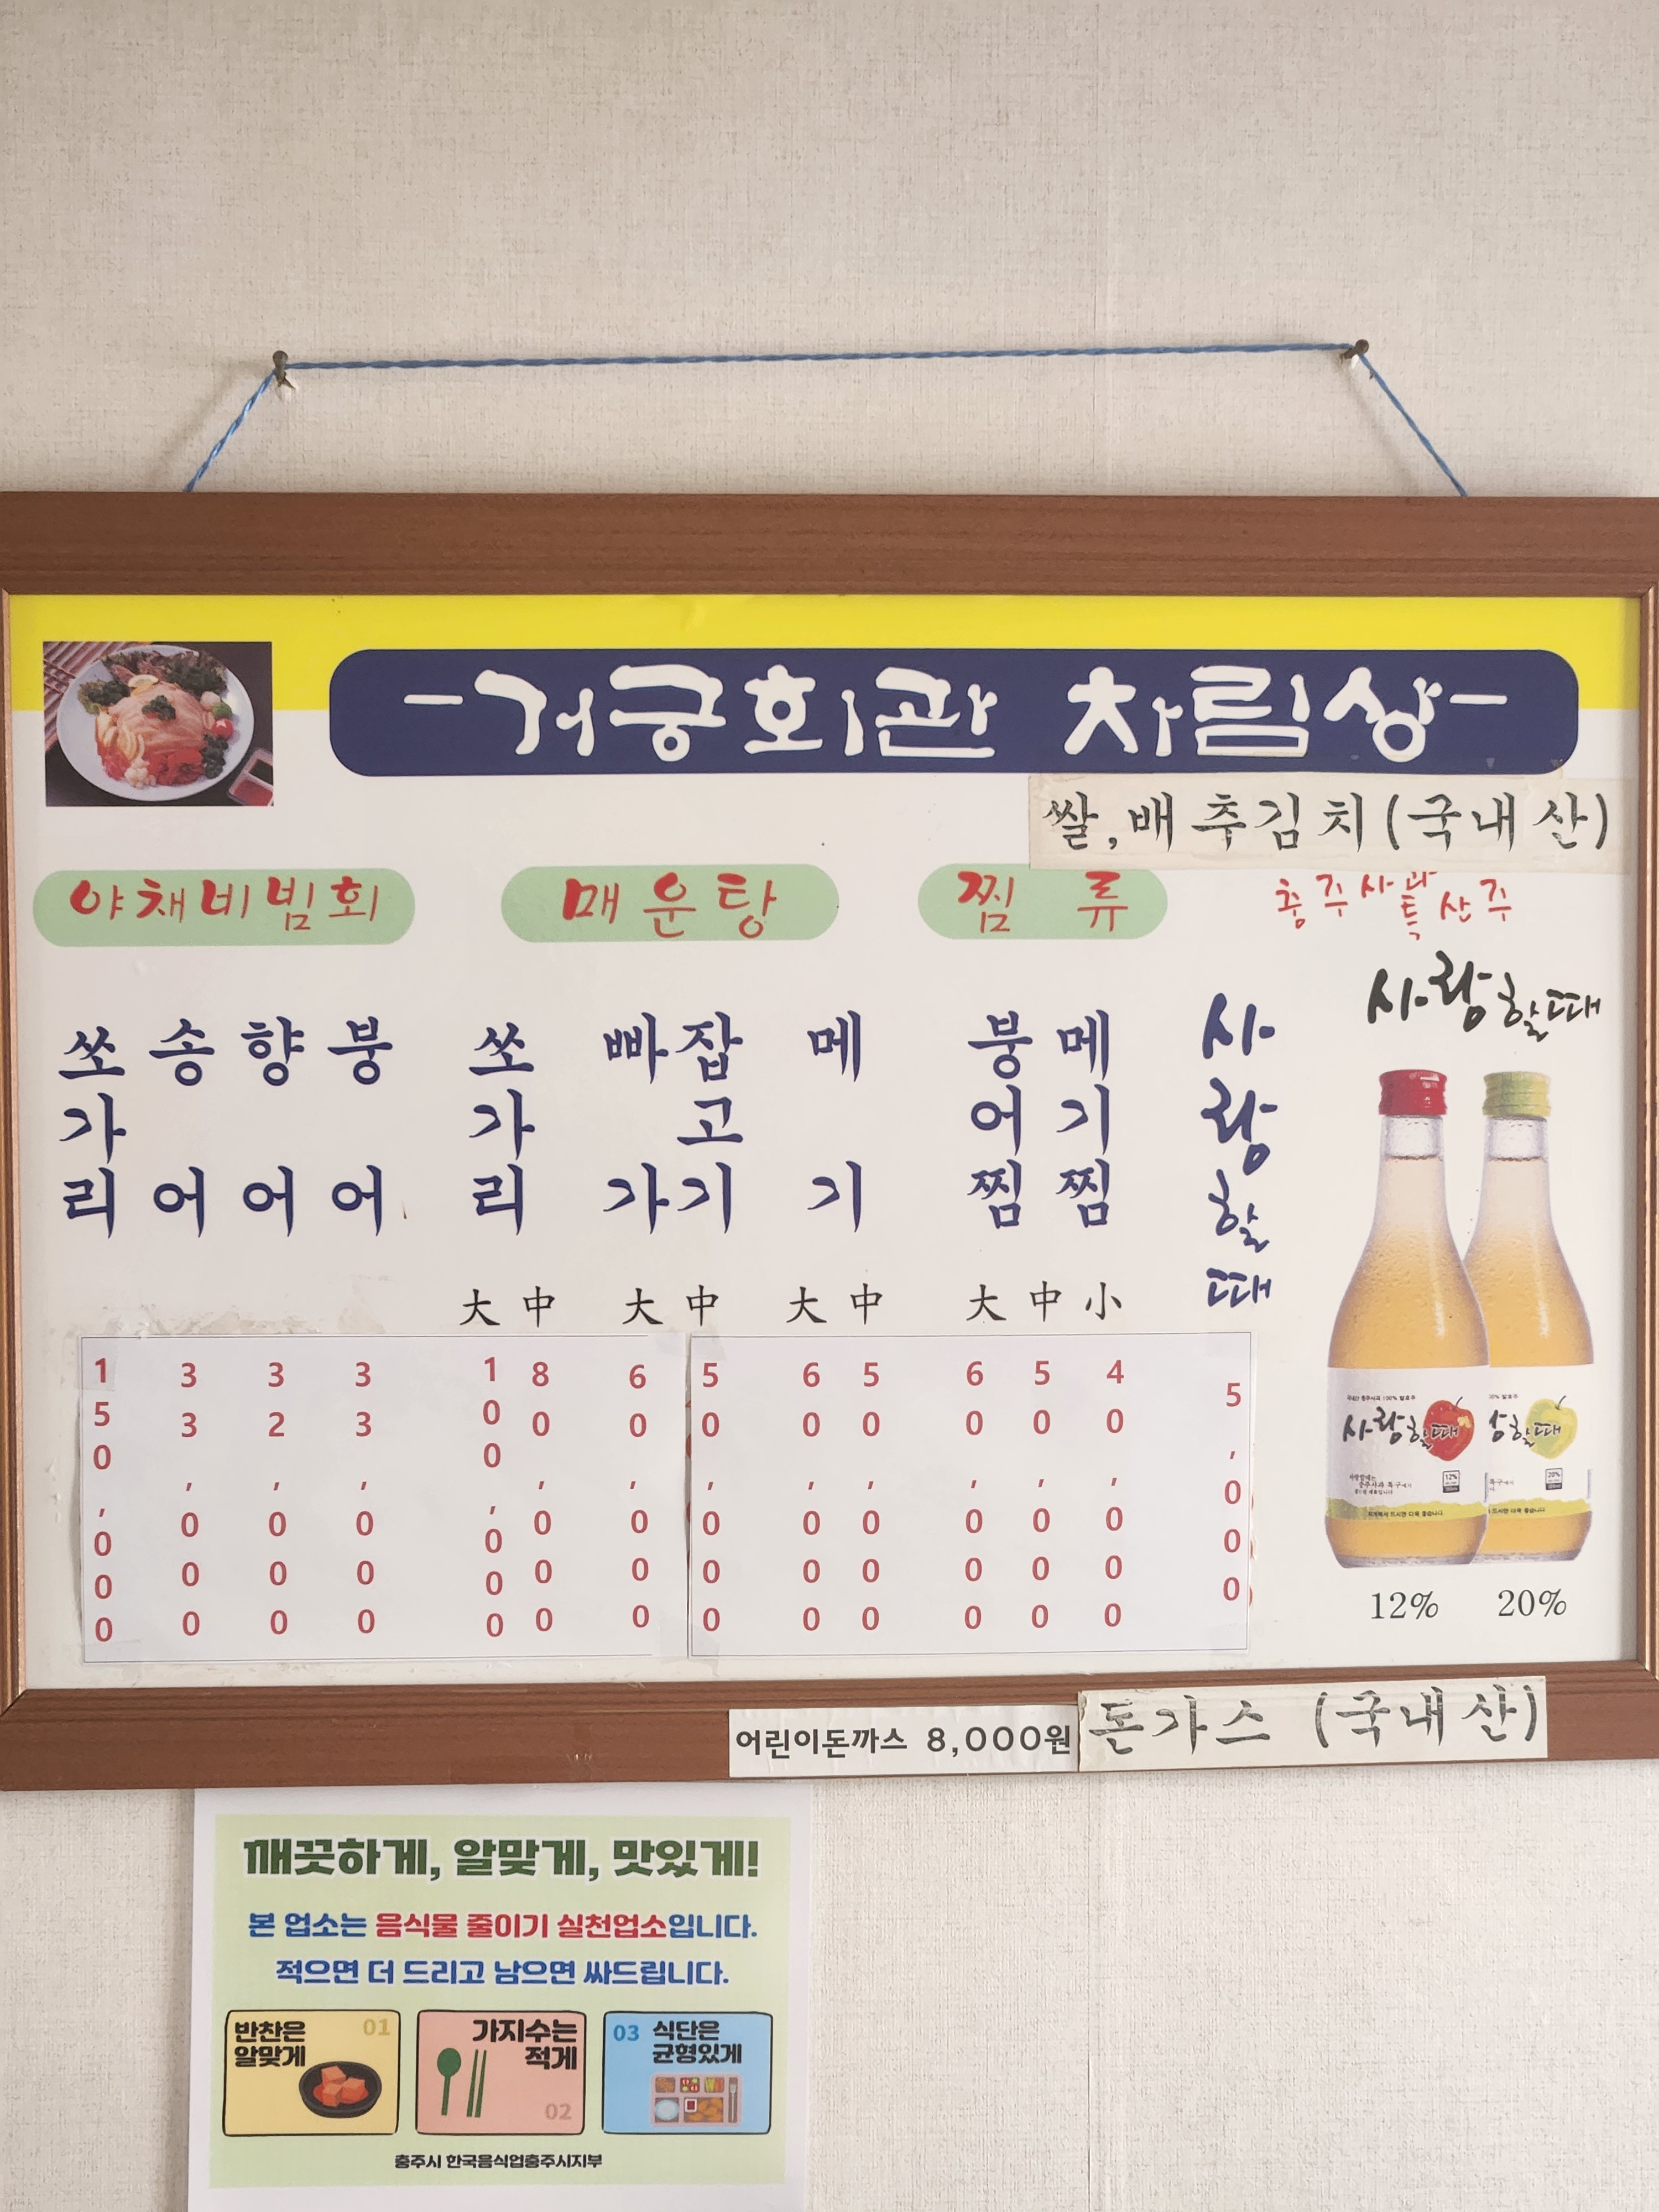 -거궁회관 차림상-
쌀,배추김치(국내산)
야채비빔회
쏘가리 송어 향어 붕어
150,000 33,000 32,000 33,000
매운탕
쏘가리 빠가 잡고기 메기
大 中 大 中 大 中
100,000 80,000 60,000 50,000 60,000 50,000
찜 류
붕어찜 메기찜
大 中 小
60,000 50,000 40,000
충주사과
특산주
사랑할때
5,000
사랑할때
사랑할때
12%
20%
12% 20%
어린이돈까스 8,000원
돈가스 (국내산)
깨끗하게, 알맞게, 맛있게!
본 업소는 음식물 줄이기 실천업소입니다.
적으면 더 드리고 남으면 싸드립니다.
반찬은 01
알맞게
가지수는
적게
02
03 식단은
균형있게
충주시 한국음식업충주시지부